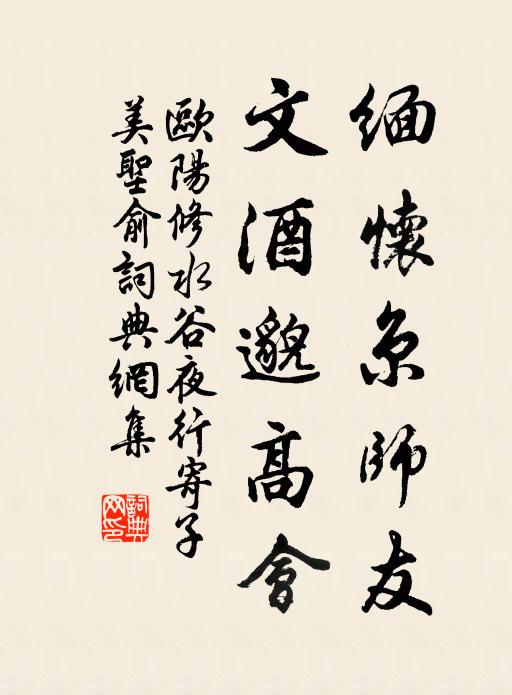 緬懷京師友
文酒邈高會
歐陽修水谷夜行寄子
美聖俞詞典網集
詞典網印